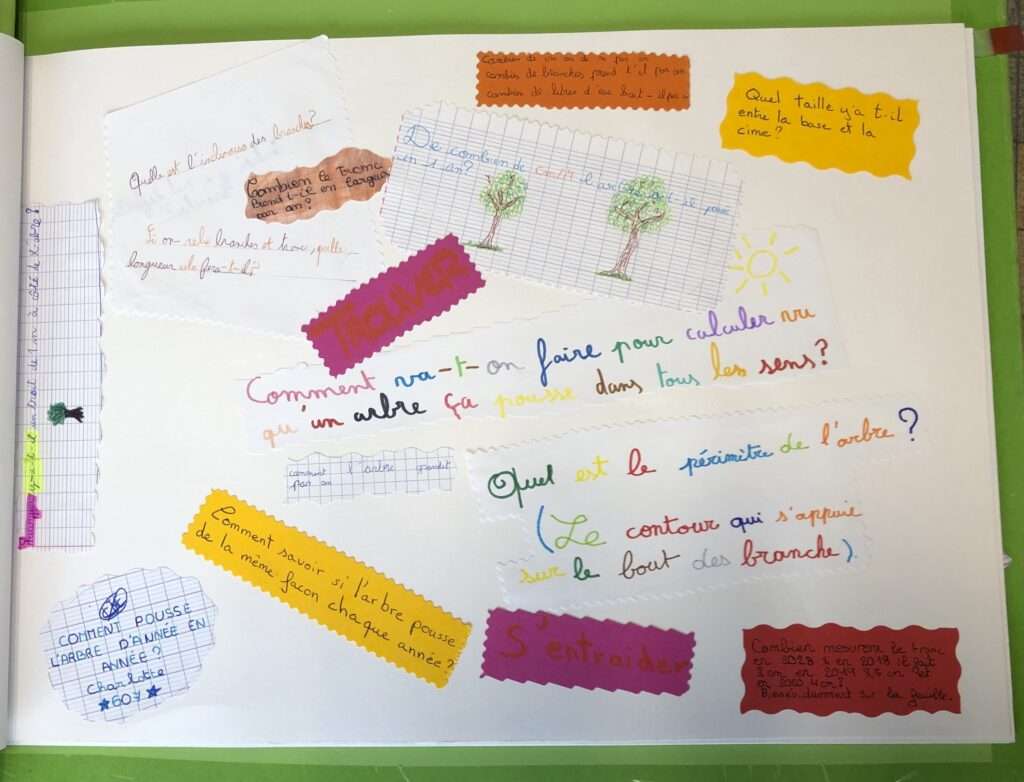 Quelle est l'inclinaison des branches?
Combien le tronc
Prend t-il en largeur
par an?
Si on relie branches et tronc, quelle
longueur cela fera-t-il?
combien de branches prend t'il par an
combien de litres d'eau
Quel taille y'a t-il
entre la base et la
cime?
De combien de l'arbre
en 1 an?
Trouver
Comment va-t-on faire pour calculer vu
qu'un arbre ça pousse dans tous les sens?
Pourquoi y-a-t-il un trait de 1 m à côté de l'arbre?
comment l'arbre grandit
par an
Quel est le périmitre de l'arbre?
(Le contour qui s'appuie
sur le bout des branche).
Comment savoir si l'arbre pousse
de la même façon chaque année?
COMMENT POUSSE
L'ARBRE D'ANNÉE EN
ANNÉE?
Charlotte
607
S'entraider
Combien mesurera le tronc
en 2023 si en 2018 il fait
3 cm en 2019 3,5 cm et
en 2020 4 cm?
Biensi durment sur la feuille.